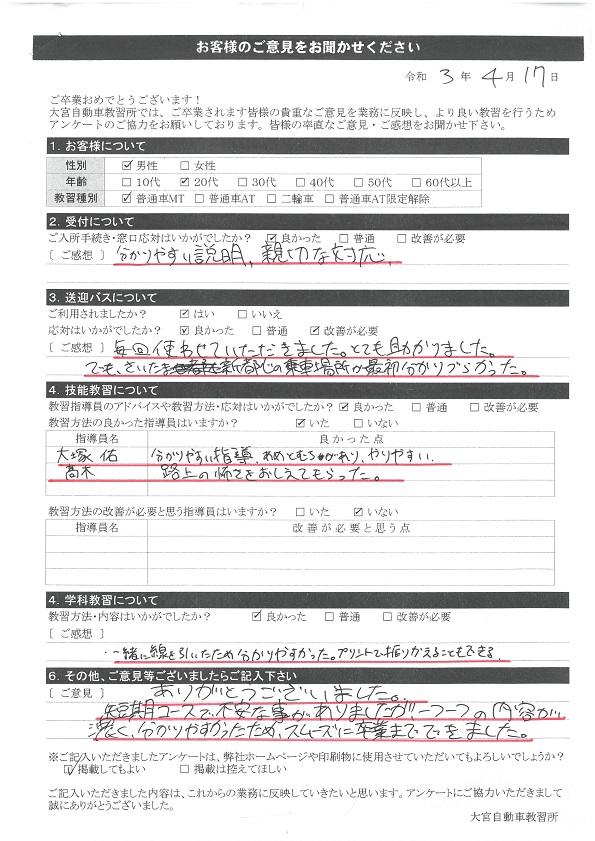 お客様のご意見をお聞かせください
令和 3 年 4 月 17 日
ご卒業おめでとうございます！
大宮自動車教習所では、ご卒業されます皆様の貴重なご意見を業務に反映し、より良い教習を行うため
アンケートのご協力をお願いしております。皆様の率直なご意見・ご感想をお聞かせ下さい。
1. お客様について
性別 ☑ 男性 □ 女性
年齢 □ 10代 ☑ 20代 □ 30代 □ 40代 □ 50代 □ 60代以上
教習種別 ☑ 普通車MT □ 普通車AT □ 二輪車 □ 普通車AT限定解除
2. 受付について
ご入所手続き・窓口応対はいかがでしたか？ ☑ 良かった □ 普通 □ 改善が必要
〔 ご感想 〕 分かりやすい説明、親切な対応、
3. 送迎バスについて
ご利用されましたか？ ☑ はい □ いいえ
応対はいかがでしたか？ ☑ 良かった □ 普通 ☑ 改善が必要
〔 ご感想 〕 毎回使わせていただきました。とても助かりました。
でも、さいたま新都心の乗車場所が最初分かりづらかった。
4. 技能教習について
教習指導員のアドバイスや教習方法・応対はいかがでしたか？ ☑ 良かった □ 普通 □ 改善が必要
教習方法の良かった指導員はいますか？ ☑ いた □ いない
指導員名 良かった点
大塚 佑 分かりやすい指導、あめとむちがあり、やりやすい。
高木 路上の怖さをおしえてもらった。
教習方法の改善が必要と思う指導員はいますか？ □ いた ☑ いない
指導員名 改善が必要と思う点
4. 学科教習について
教習方法・内容はいかがでしたか？ ☑ 良かった □ 普通 □ 改善が必要
〔 ご感想 〕
・一緒に線を引いたため分かりやすかった。プリントで振りかえることもできる。
6. その他、ご意見等ございましたらご記入下さい
〔 ご意見 〕 ありがとうございました。
短期コースで、不安な事がありましたが、一つ一つの内容が
濃く、分かりやすかったため、スムーズに卒業までできました。
※ご記入いただきましたアンケートは、弊社ホームページや印刷物に使用させていただいてもよろしいでしょうか？
☑ 掲載してもよい □ 掲載は控えてほしい
ご記入いただきました内容は、これからの業務に反映していきたいと思います。アンケートにご協力いただきまして
誠にありがとうございました。
大宮自動車教習所